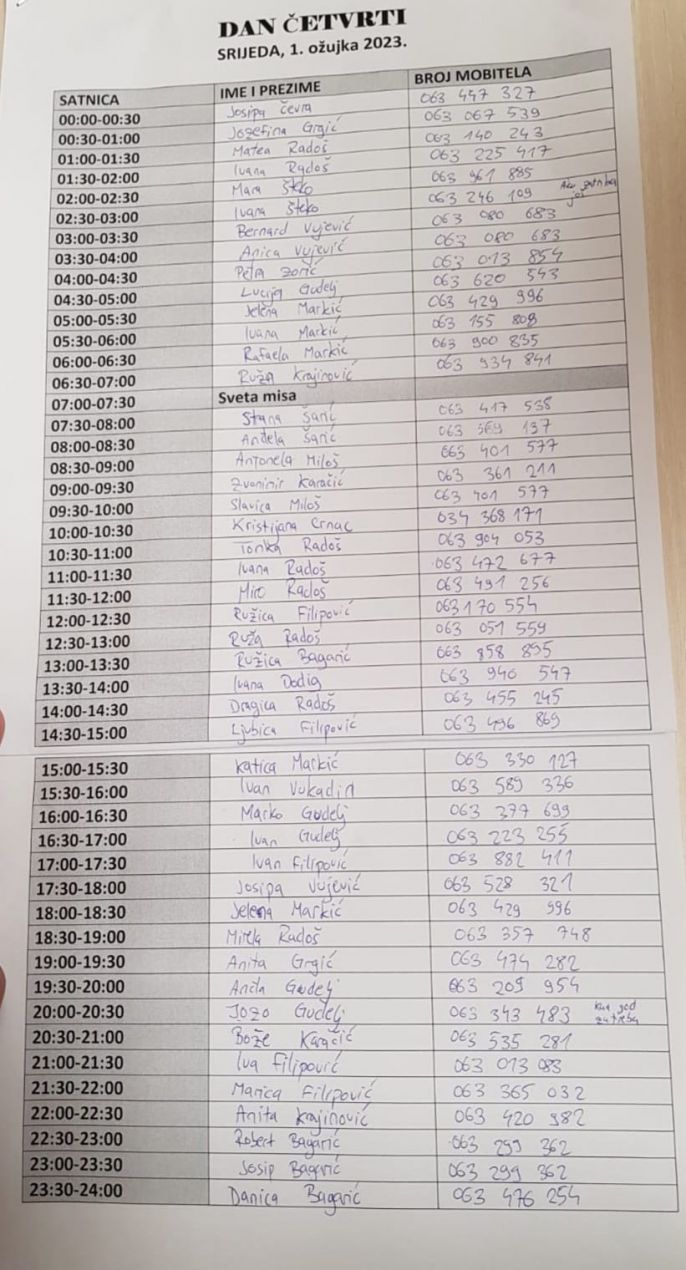 DAN ČETVRTI
SRIJEDA, 1. ožujka 2023.
SATNICA IME I PREZIME BROJ MOBITELA
00:00-00:30 Josipa Čevra 063 457 327
00:30-01:00 Jozefina Grgić 063 067 539
01:00-01:30 Matea Radoš 063 140 243
01:30-02:00 Ivana Radoš 063 225 417
02:00-02:30 Mara Šteko 063 961 885
02:30-03:00 Ivana Šteko 063 246 109 Ako
03:00-03:30 Bernard Vujević 063 080 683
03:30-04:00 Anica Vujević 063 080 683
04:00-04:30 Petra Zorić 063 013 854
04:30-05:00 Lucija Gudelj 063 620 343
05:00-05:30 Jelena Markić 063 429 996
05:30-06:00 Ivana Markić 063 155 808
06:00-06:30 Rafaela Markić 063 900 835
06:30-07:00 Ruža Krajinović 063 934 841
07:00-07:30 Sveta misa
07:30-08:00 Stana Šarić 063 417 538
08:00-08:30 Anđela Šarić 063 569 137
08:30-09:00 Antonela Miloš 063 401 577
09:00-09:30 Zvonimir Karačić 063 361 211
09:30-10:00 Slavica Miloš 063 401 577
10:00-10:30 Kristijana Crnac 034 368 171
10:30-11:00 Tonka Radoš 063 904 053
11:00-11:30 Ivana Radoš 063 472 677
11:30-12:00 Miro Radoš 063 491 256
12:00-12:30 Ružica Filipović 063 170 554
12:30-13:00 Ruža Radoš 063 051 559
13:00-13:30 Ružica Bagarić 063 858 895
13:30-14:00 Ivana Dodig 063 940 547
14:00-14:30 Dragica Radoš 063 455 245
14:30-15:00 Ljubica Filipović 063 496 869
15:00-15:30 Katica Markić 063 330 127
15:30-16:00 Ivan Vukadin 063 589 336
16:00-16:30 Marko Gudelj 063 377 699
16:30-17:00 Ivan Gudelj 063 223 255
17:00-17:30 Ivan Filipović 063 882 411
17:30-18:00 Josipa Vujević 063 528 321
18:00-18:30 Jelena Markić 063 429 996
18:30-19:00 Mirela Radoš 063 357 748
19:00-19:30 Anita Grgić 063 474 282
19:30-20:00 Anđa Gudelj 063 209 954
20:00-20:30 Jozo Gudelj 063 343 483 kad god zatreba
20:30-21:00 Bože Karačić 063 535 281
21:00-21:30 Iva Filipović 063 013 083
21:30-22:00 Marica Filipović 063 365 032
22:00-22:30 Anita Krajinović 063 420 982
22:30-23:00 Robert Bagarić 063 299 362
23:00-23:30 Josip Bagarić 063 299 362
23:30-24:00 Danica Bagarić 063 476 254